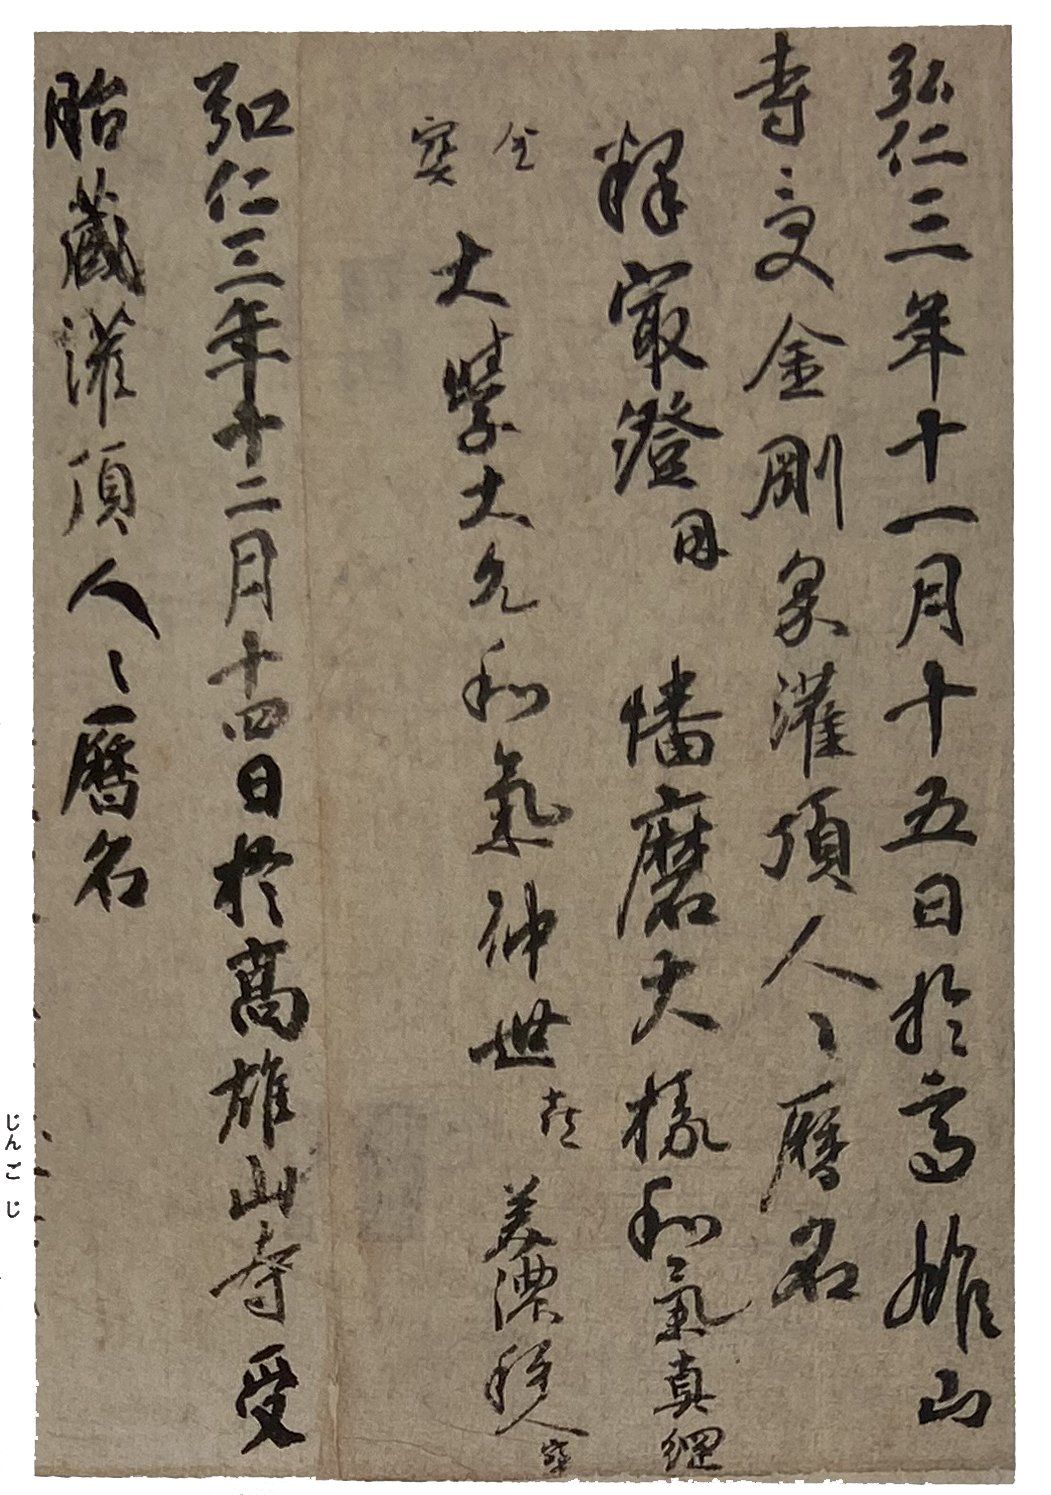 弘仁三年十一月十五日於高雄山
寺受金剛界灌頂人々暦名
釋最澄 因 播磨大掾和氣真綱
金
宝 大學大允和氣仲世 喜 美濃種人 宝
弘仁三年十二月十四日於高雄山寺受
胎藏灌頂人々暦名
じんごじ